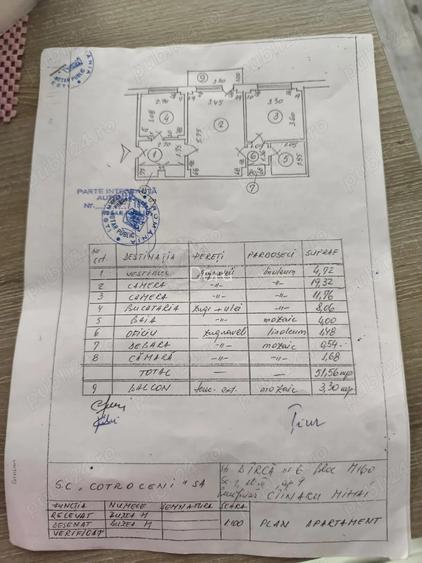 9
3.45
3.30
2.70
4
3.08
2
5.75
3
3.60
2.70
1
6
5
7
PARTE INTEGRANTĂ
Nr.
NOTAR PUBLIC
ROMANIA
Nr. crt. DESTINATIA PERETI PARDOSELI SUPRAF
1 VESTIBUL zugraveli linoleum 4,72
2 CAMERA -"- -"- 19,32
3 CAMERA -"- -"- 11,76
4 BUCATARIA zugr + ulei 8,06
5 BAIA -"- mozaic 4,00
6 OFICIU zugraveli linoleum 1,48
7 DEBARA -"- mozaic 0,54
8 CĂMARĂ -"- -"- 1,68
TOTAL — — 51,56 mp
9 BALCON tenc. ext. mozaic 3,30 mp
S.C. "COTROCENI" SA
BÎRCA nr 6 Bloc M160
ap 9
MIHAI
FUNCTIA NUMELE SEMNATURA SCARA
RELEVAT BUZEA M 1:100 PLAN APARTAMENT
DESENAT BUZEA M
VERIFICAT